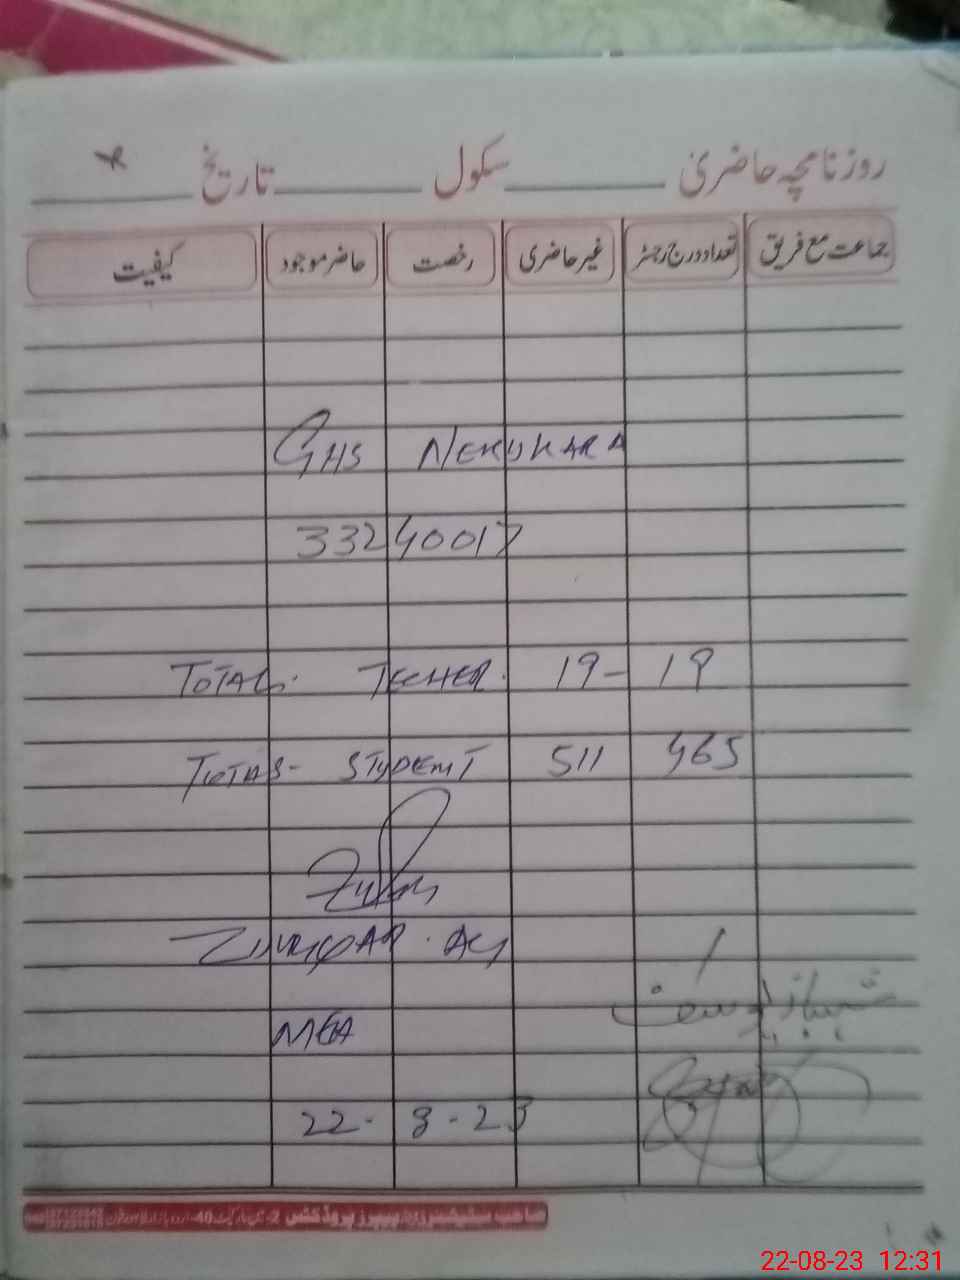 روزنامچہ حاضری ______ سکول ______ تاریخ ______
جماعت مع فریق تعداد درج رجسٹر غیر حاضری رخصت حاضر موجود کیفیت
GHS NEKUKARA
33240017
TOTAL. TECHER. 19- 19
TOTAL- STUDENT 511 465
ZULFIQAR. ALI
MEA
شہباز یوسف
22- 8-23
22-08-23 12:31